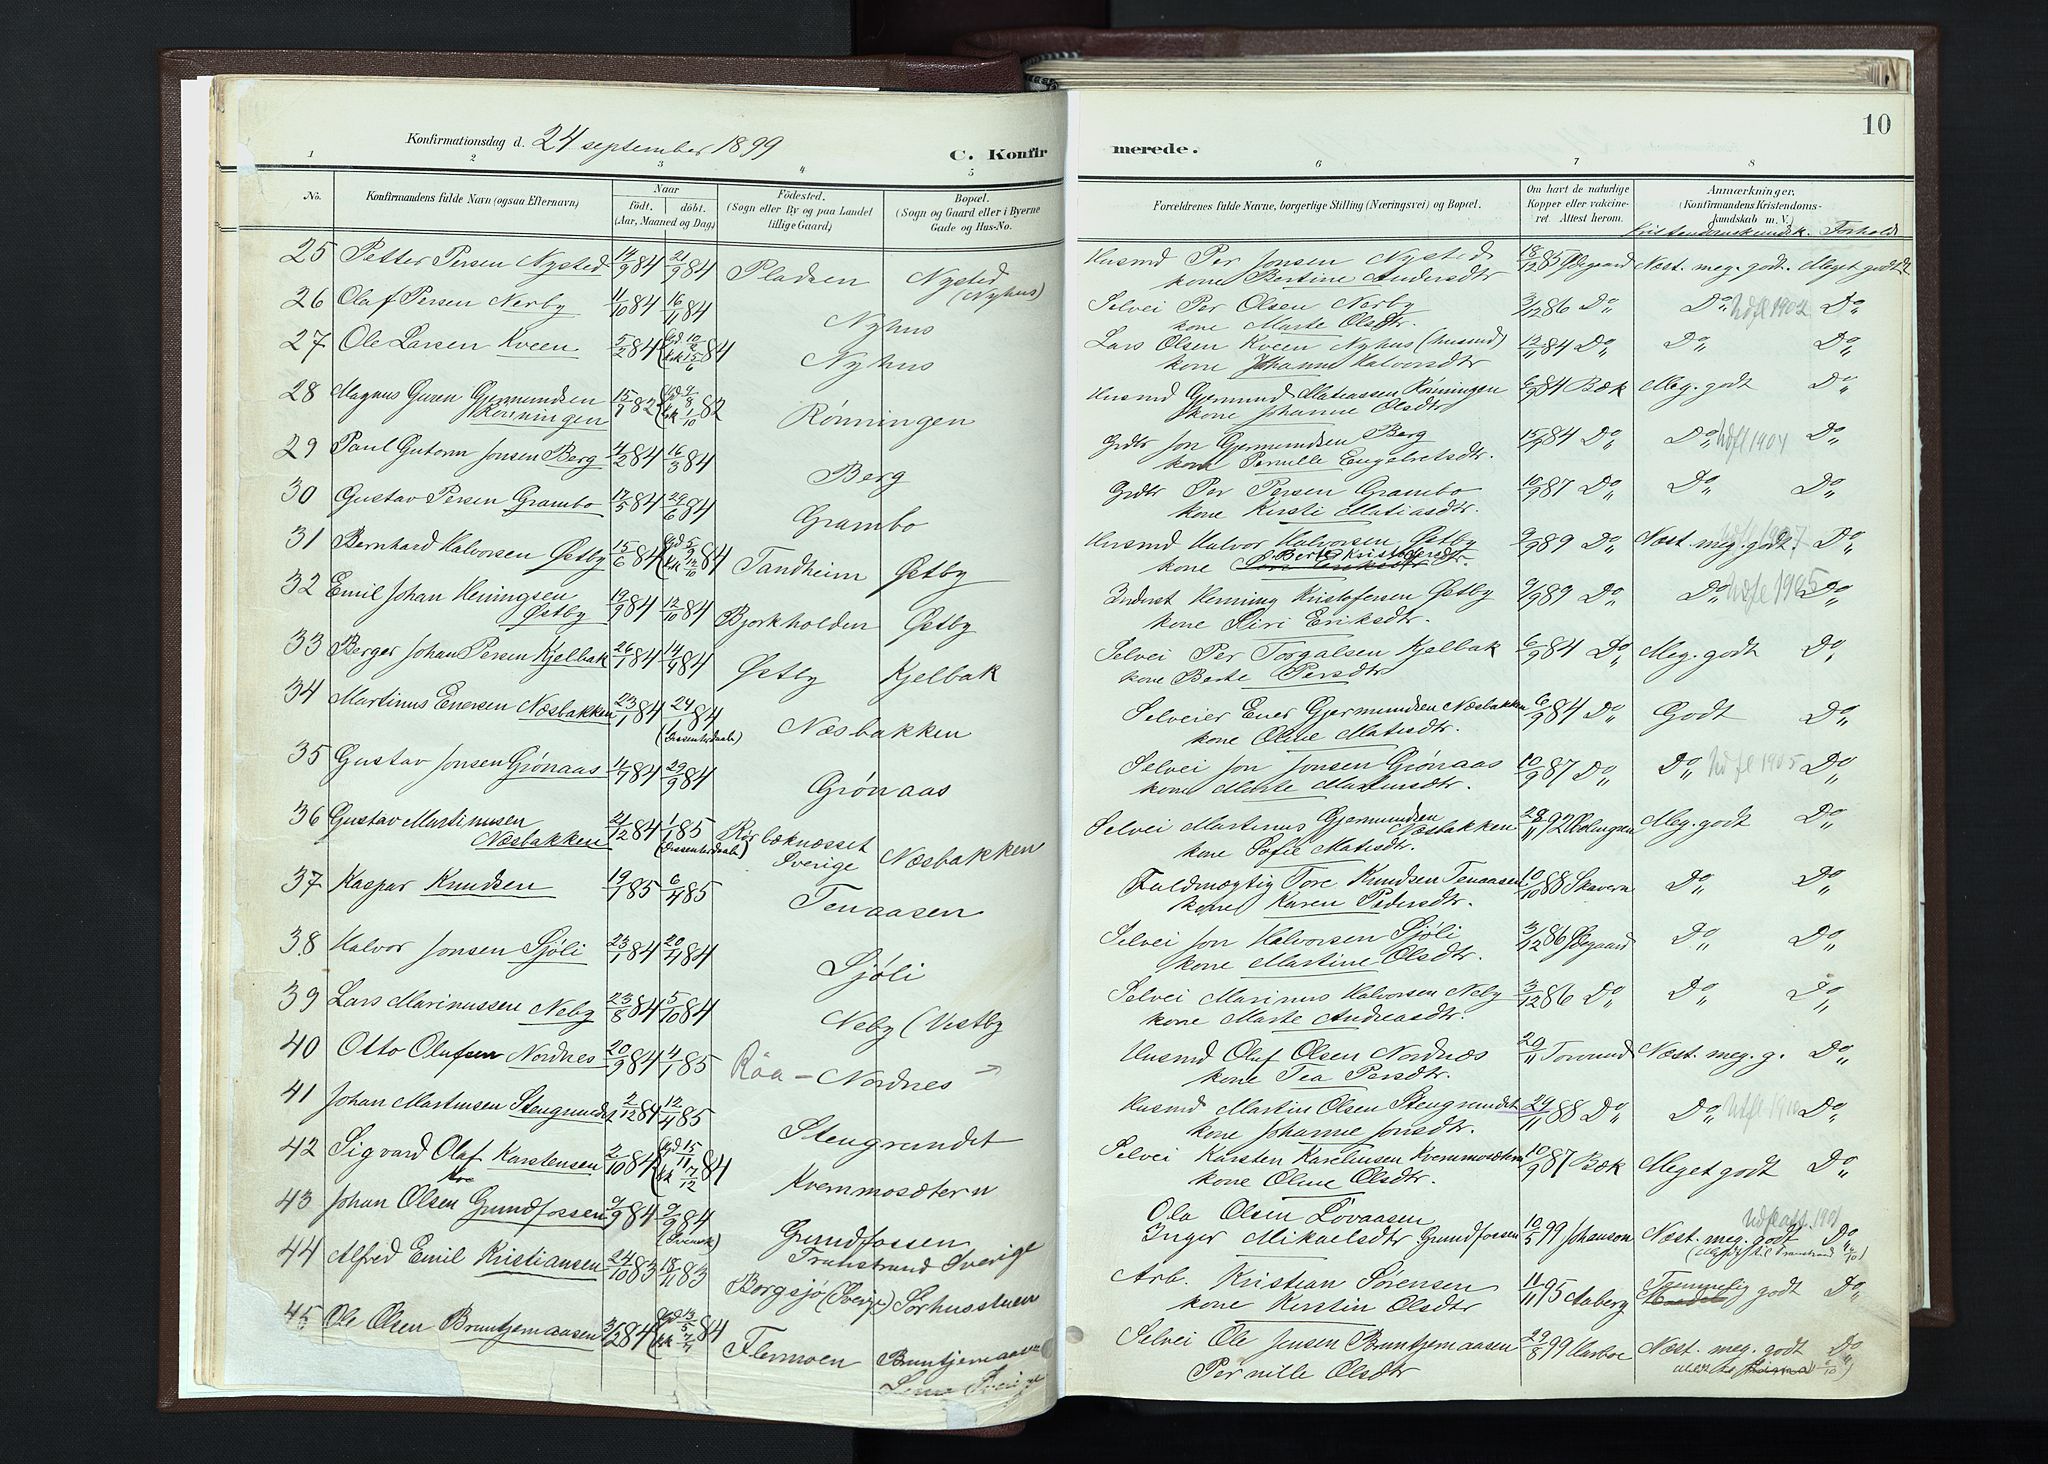 10
Konfirmationsdag d. 24 september 1899
C. Konfirmerede.
1 2 3 4 5 6 7 8
No. Konfirmandens fulde Navn (ogsaa Efternavn) Naar Födt. döbt. (Aar, Maaned og Dag) Födested. (Sogn eller By og paa Landet tillige Gaard) Bopæl. (Sogn og Gaard eller i Byerne Gade og Hus-No. Forældrenes fulde Navne, borgerlige Stilling (Næringsvei) og Bopæl. Om havt de naturlige Kopper eller vaccineret. Attest herom. Anmærkninger, (Konfirmandens Kristendomskundskab m. V.)
Kristendomskundsk. Forhold
25 Petter Persen Nysted 14/9 84 21/9 84 Pladsen Nysted (Nyhus) Husmd Per Jonsen Nysted 18/12 85 Ødegaard Næst. meg. godt. Meget godt
kone Bertine Andersdtr
26 Olaf Persen Nerby 11/10 84 16/11 84 Nyhus Selvei Per Olsen Nerby 3/12 86 Do Do Udfl 1902 Do
kone Marte Olsdtr.
27 Ole Larsen Kveen 5/2 84 Gd 10/2 bk 15/6 84 Nyhus Lars Olsen Kveen Nyhus (husmd) 12/11 84 Do Do Do
kone Johanne Halvorsdtr
28 Magnus Guren Gjermundsen Rønningen 15/7 82 bk 1/10 82 Rønningen Husmd Gjermund Matiassen Rønningen 6/9 84 Bæk Meg. godt Do
kone Johanne Olsdtr
29 Paul Gutorm Jonsen Berg 4/2 84 16/3 84 Berg Grdtr Jon Gjermundsen Berg 15/9 84 Do Do Udfl 1904 Do
kone Pernille Engebretsdtr.
30 Gustav Persen Grambo 17/5 84 29/6 84 Grambo Grdtr Per Persen Grambo 10/9 87 Do Do Do
kone Kirsti Matiasdtr.
31 Bernhard Halvorsen Østby 15/6 84 bk 12/10 84 Tandheim Østby Husmd Halvor Halvorsen Østby 9/9 89 Do Næst. meg. godt. Do
kone Berte Kristofersdtr.
32 Emil Johan Heningsen Østby 19/9 84 12/10 84 Bjorkholden Østby Inderst Henning Kristofersen Østby 9/9 89 Do Do Udfl 1905 Do
kone Siri Eriksdtr.
33 Berger Johan Persen Kjelbak 26/1 84 14/4 84 Østby Kjelbak Selvei Per Torgalsen Kjelbak 6/9 84 Do Meg. godt Do
kone Berte Persdtr.
34 Martinus Enersen Næsbakken 23/1 84 24/1 84 (Dissenterdaab) Næsbakken Selveier Ener Gjermundsen Næsbakken 6/9 84 Do Godt Do
kone Oline Matisdtr.
35 Gustav Jonsen Grønaas 11/7 84 29/9 84 Grønaas Selvei Jon Jonsen Grønaas 10/9 87 Do Do Udfl 1905 Do
kone Marte Martinsdtr.
36 Gustav Martinusen Næsbakken 21/12 84 1/1 85 (Dissenterdaab) Rör bæknæsset Sverige Næsbakken Selvei Martinus Gjermundsen Næsbakken 28/11 92 Meg. godt Do
kone Sofie Matisdtr.
37 Kaspar Knudsen 19/1 85 6/4 85 Tenaasen Fuldmægtig Tore Knudsen Tenaasen 10/10 88 Skavern Do Do
kone Karen Pedersdtr.
38 Halvor Jonsen Sjøli 23/1 84 20/4 84 Sjøli Selvei Jon Halvorsen Sjøli 3/12 86 Ødegaard Do Do
kone Martine Olsdtr.
39 Lars Marinussen Neby 23/8 84 5/10 84 Neby (Vestby Selvei Marinus Halvorsen Neby 3/12 86 Do Do Do
kone Marte Andreasdtr.
40 Otto Olafsen Nordnes 20/9 84 4/1 85 Röa – Nordnes Husmd Olaf Olsen Nordnæs 29/11 Torsrud Næst. meg. g. Do
kone Tea Persdtr.
41 Johan Martinsen Stengrundet 2/12 84 12/4 85 Stengrundet Husmd Martin Olsen Stengrundet 29/11 88 Do Do Do
kone Johanne Jonsdtr.
42 Sigvard Olaf Karstensen 2/10 84 Gd 15/11 bk 7/12 84 Kvernmosætern Selvei Karsten Karelinsen Kvernmosætern 10/9 87 Bæk Meget godt Do
kone Oline Olsdtr.
43 Johan Olsen Grundfossen 9/9 84 9/9 84 (Svensk) Grundfossen Transtrand Sverige Ola Olsen Lövaasen Udfl. att. 1901
Inger Mikaelsdtr Grundfossen 10/5 99 Johanson Næst. meg. godt Do
44 Alfred Emil Kristiansen 24/10 83 18/11 83 Borgsjø (Sverige) Sørhusstuen Arb. Kristian Sørensen 11/11 95 Aaberg Temmelig godt Do
kone Kirstin Olsdtr
45 Ole Olsen Bruntjernaasen 3/2 84 84 Flermoen Bruntjernaasen Lima Sverige Selvei Ole Jensen Bruntjernaasen 29/8 99 Harboe Næst. meg. godt Do
Pernille Olsdtr